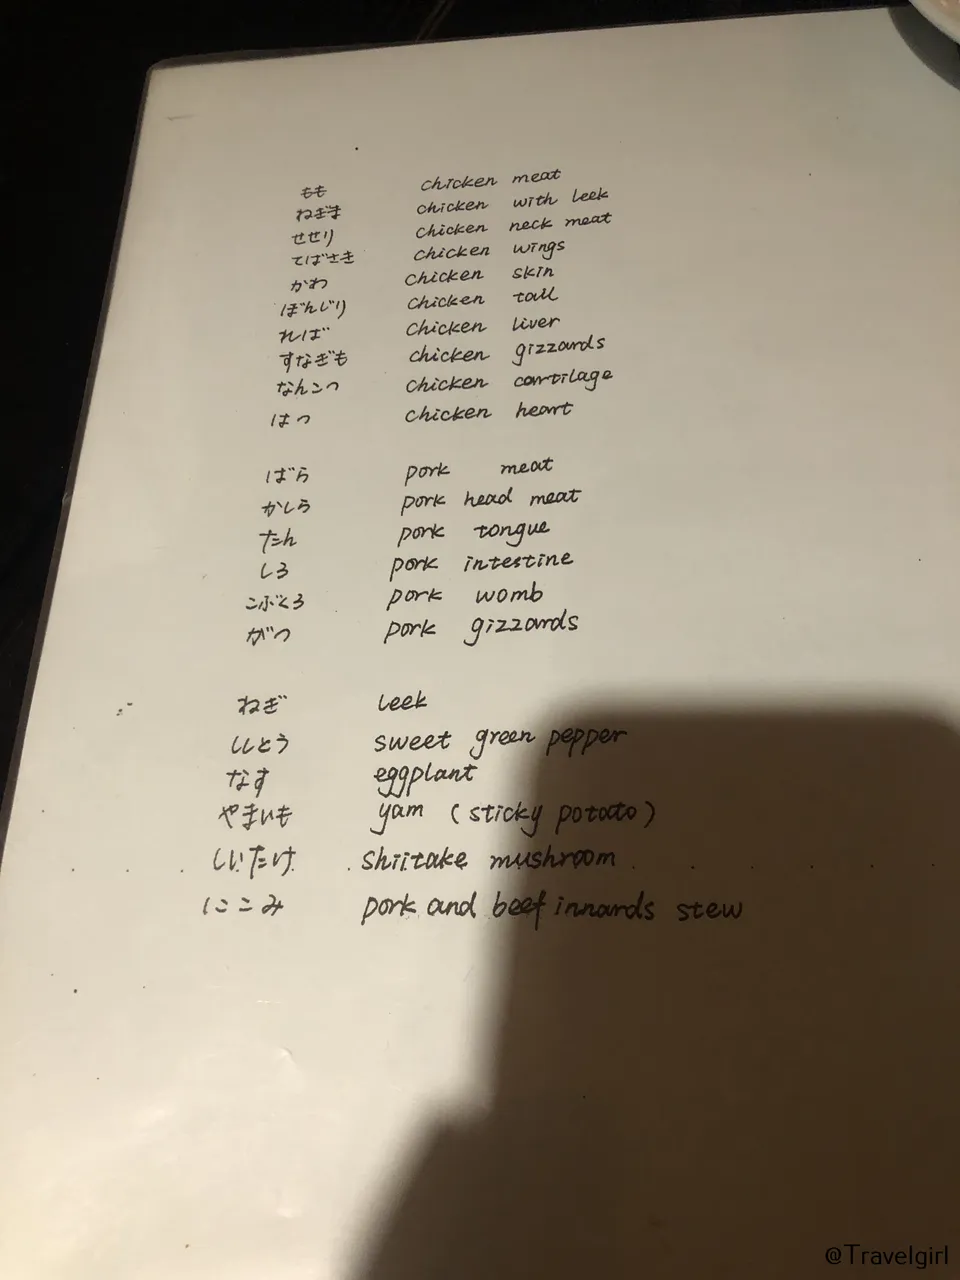 もも chicken meat
ねぎま chicken with leek
せせり chicken neck meat
てばさき chicken wings
かわ chicken skin
ぼんじり chicken tail
ればー chicken liver
すなぎも chicken gizzards
なんこつ chicken cartilage
はつ chicken heart
ばら pork meat
かしら pork head meat
たん pork tongue
しろ pork intestine
こぶくろ pork womb
がつ pork gizzards
ねぎ leek
ししとう sweet green pepper
なす eggplant
やまいも yam (sticky potato)
しいたけ shiitake mushroom
にこみ pork and beef innards stew
@Travelgirl